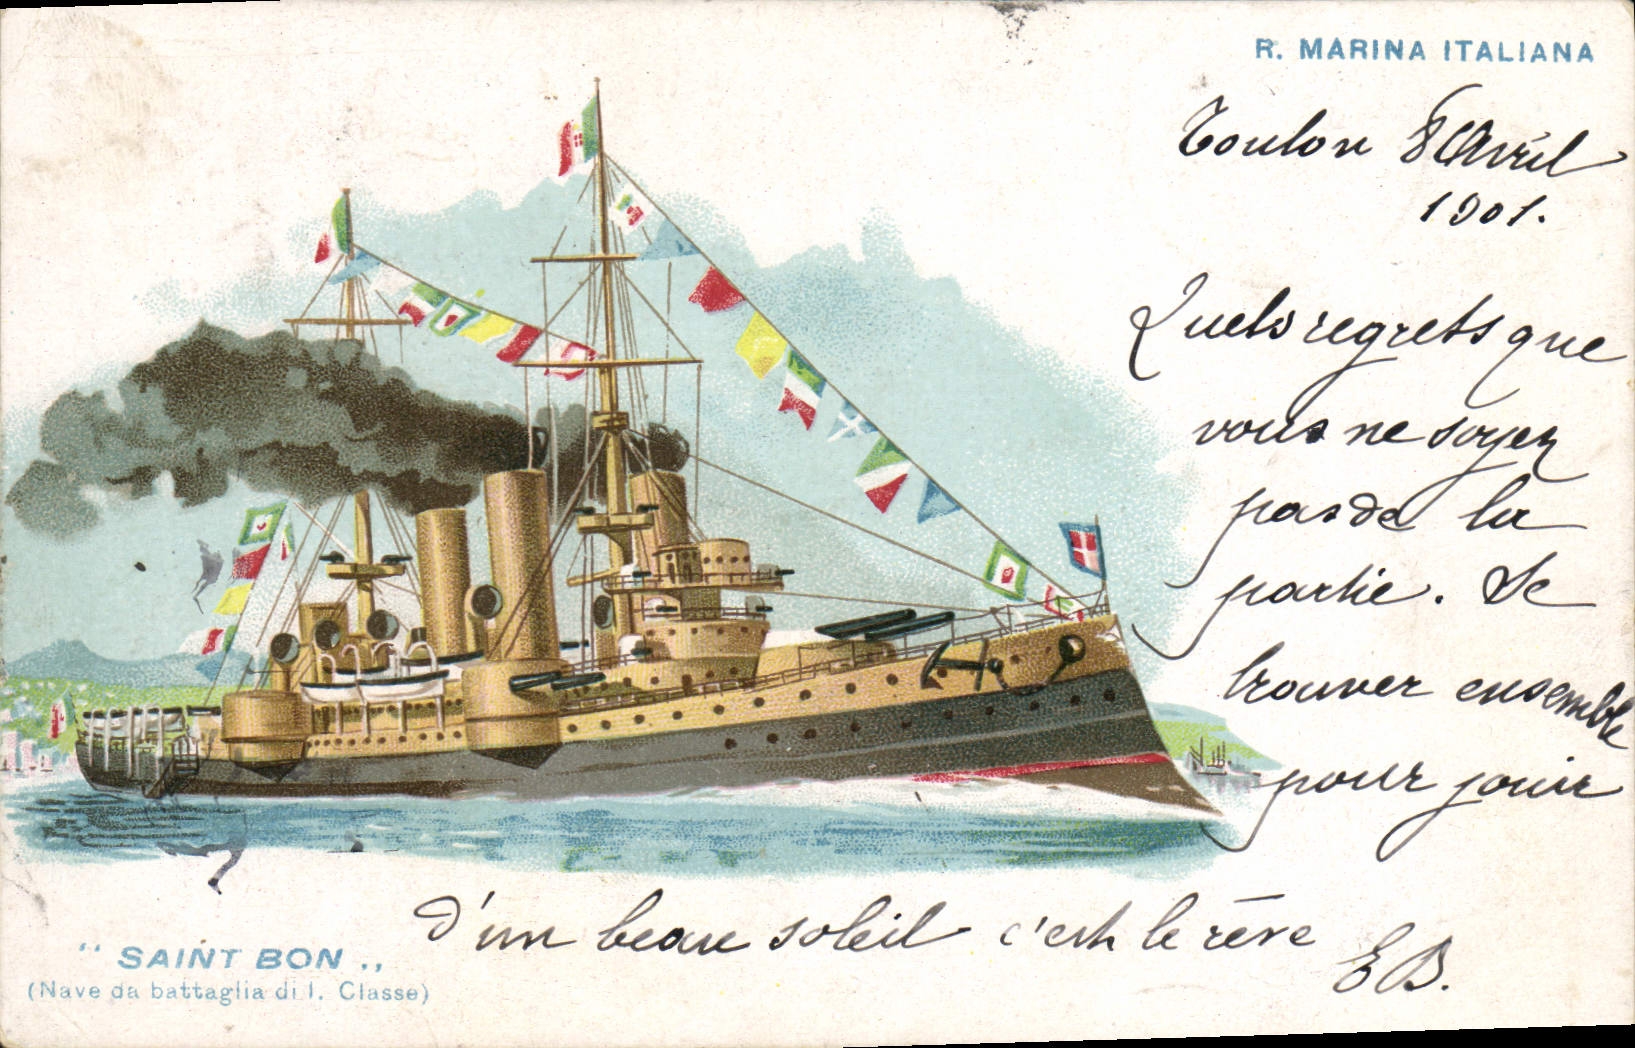 R. MARINA ITALIANA
Toulon 8 Avril
1901.
Quels regrets que
vous ne soyez
pas de la
partie. Se
trouver ensemble
pour jouir
d'un beau soleil c'est le rêve
EB.
" SAINT BON „
(Nave da battaglia di I. Classe)